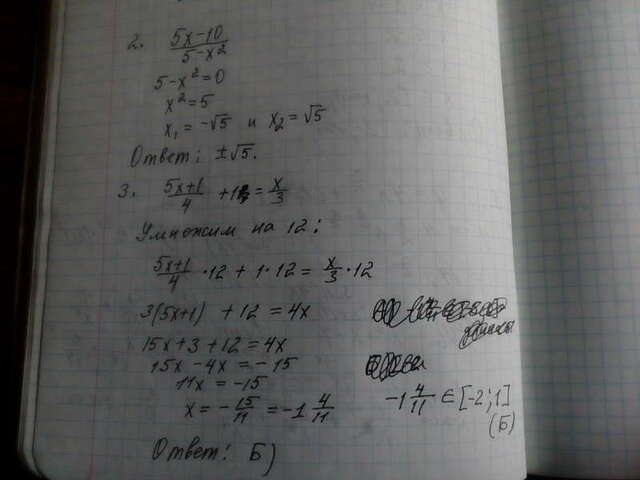 2. (5x-10)/(5-x²)
5-x²=0
x²=5
x₁=-√5 и x₂=√5
Ответ: ±√5.
3. (5x+1)/4 +1=x/3
Умножим на 12:
(5x+1)/4·12+1·12=x/3·12
3(5x+1)+12=4x
15x+3+12=4x
15x-4x=-15
11x=-15
x=-15/11=-1 4/11
-1 4/11 ∈ [-2;1]
(Б)
Ответ: Б)